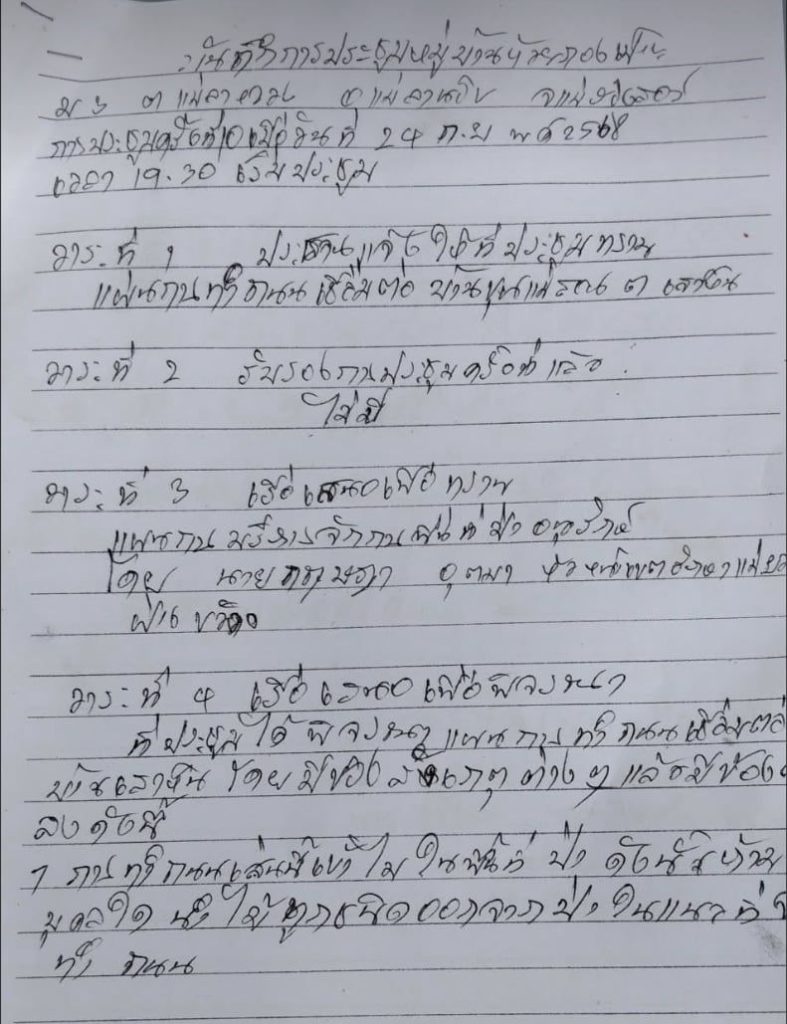 บันทึกการประชุมหมู่บ้านห้วยกองเป๊าะ
ม 3 ต แม่ลาหลวง อ แม่ลาน้อย จ แม่ฮ่องสอน
การประชุมครั้งที่ เมื่อวันที่ 24 ก.ย พ ศ 2568
เวลา 19.30 เริ่มประชุม
วาระที่ 1 ประธานแจ้งให้ที่ประชุมทราบ
แผนการทำถนนเชื่อมต่อ บ้านขุนแม่ ต เสาหิน
วาระที่ 2 รับรองการประชุมครั้งที่แล้ว
ไม่มี
วาระที่ 3 เรื่องเสนอเพื่อทราบ
แผนการบริหารจัดการพื้นที่ป่าอนุรักษ์
โดย นาย อุตมา หัวหน้าเขตรักษา
วาระที่ 4 เรื่องเสนอเพื่อพิจารณา
ที่ประชุมได้พิจารณา แผนการทำถนนเชื่อมต่อ
บ้านเสาหิน โดยมีข้อสังเกตุต่างๆ แล้วมีข้อ
ลงดังนี้
1 การทำถนนเส้นนี้ ในพื้นที่ ป่า ดังนั้นห้าม
บุคลใด นำไม้ทุกชนิดออกจากป่าในแนวที่
ทำ ถนน